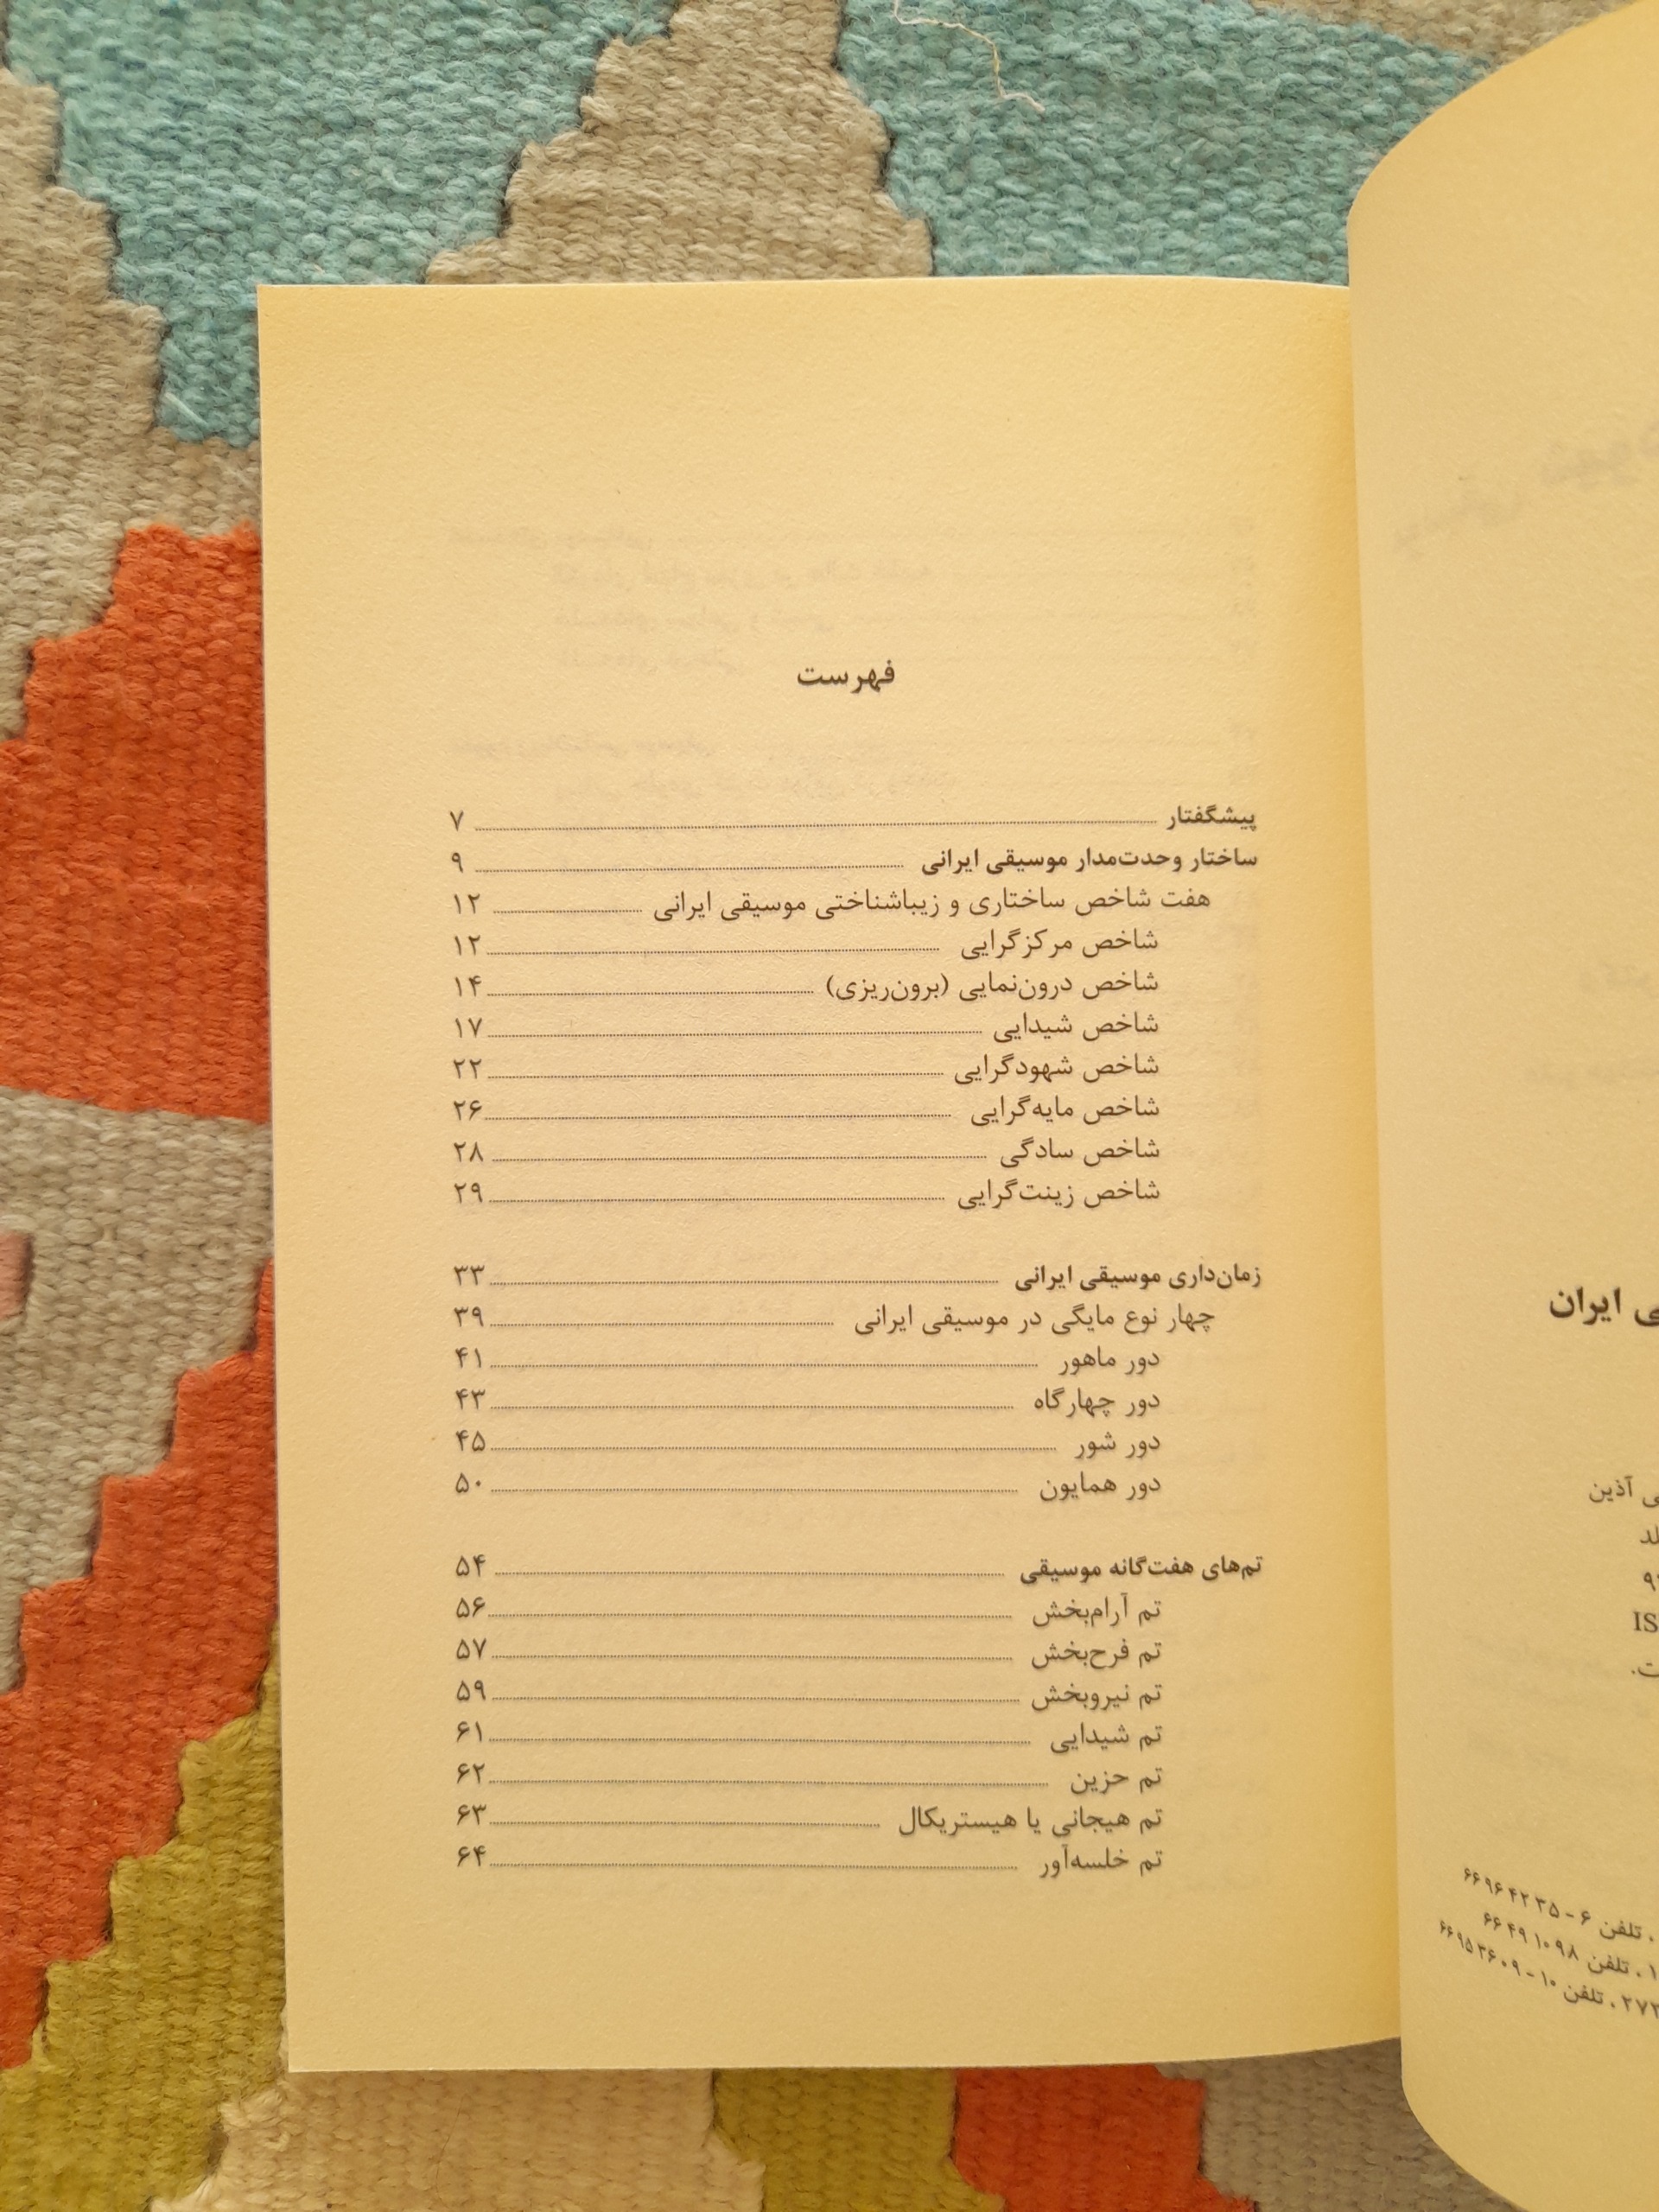 فهرست
پیشگفتار ۷
ساختار وحدت‌مدار موسیقی ایرانی ۹
هفت شاخص ساختاری و زیباشناختی موسیقی ایرانی ۱۲
شاخص مرکزگرایی ۱۲
شاخص درون‌نمایی (برون‌ریزی) ۱۴
شاخص شیدایی ۱۷
شاخص شهودگرایی ۲۲
شاخص مایه‌گرایی ۲۶
شاخص سادگی ۲۸
شاخص زینت‌گرایی ۲۹
زمان‌داری موسیقی ایرانی ۳۳
چهار نوع مایگی در موسیقی ایرانی ۳۹
دور ماهور ۴۱
دور چهارگاه ۴۳
دور شور ۴۵
دور همایون ۵۰
تم‌های هفت‌گانه موسیقی ۵۴
تم آرام‌بخش ۵۶
تم فرح‌بخش ۵۷
تم نیروبخش ۵۹
تم شیدایی ۶۱
تم حزین ۶۲
تم هیجانی یا هیستریکال ۶۳
تم خلسه‌آور ۶۴
ایران
آذین
IS
تلفن ۶-۶۶۹۶۴۲۳۵
تلفن ۶۶۴۹۱۰۹۸
تلفن ۱۰-۶۶۹۵۳۶۰۹